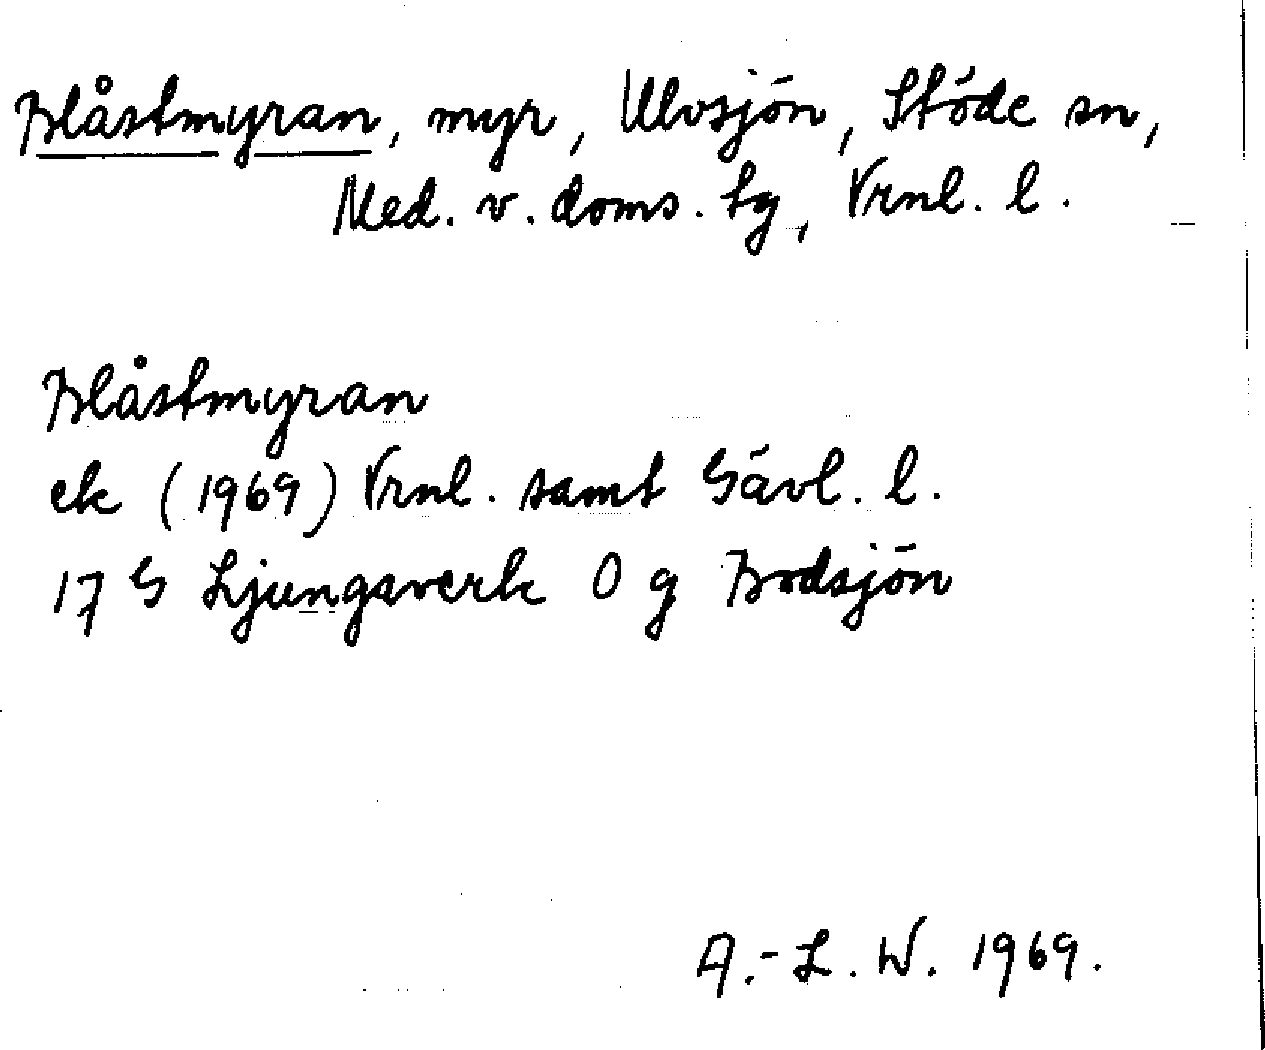 Blåstmyran, myr, Ulvsjön, Stöde sn,
Med. v. doms. tg, Vrnl. l.
Blåstmyran
ek (1969) Vrnl. samt Gävl. l.
17 G Ljungaverk 0 g Bodsjön
A.-L. W. 1969.